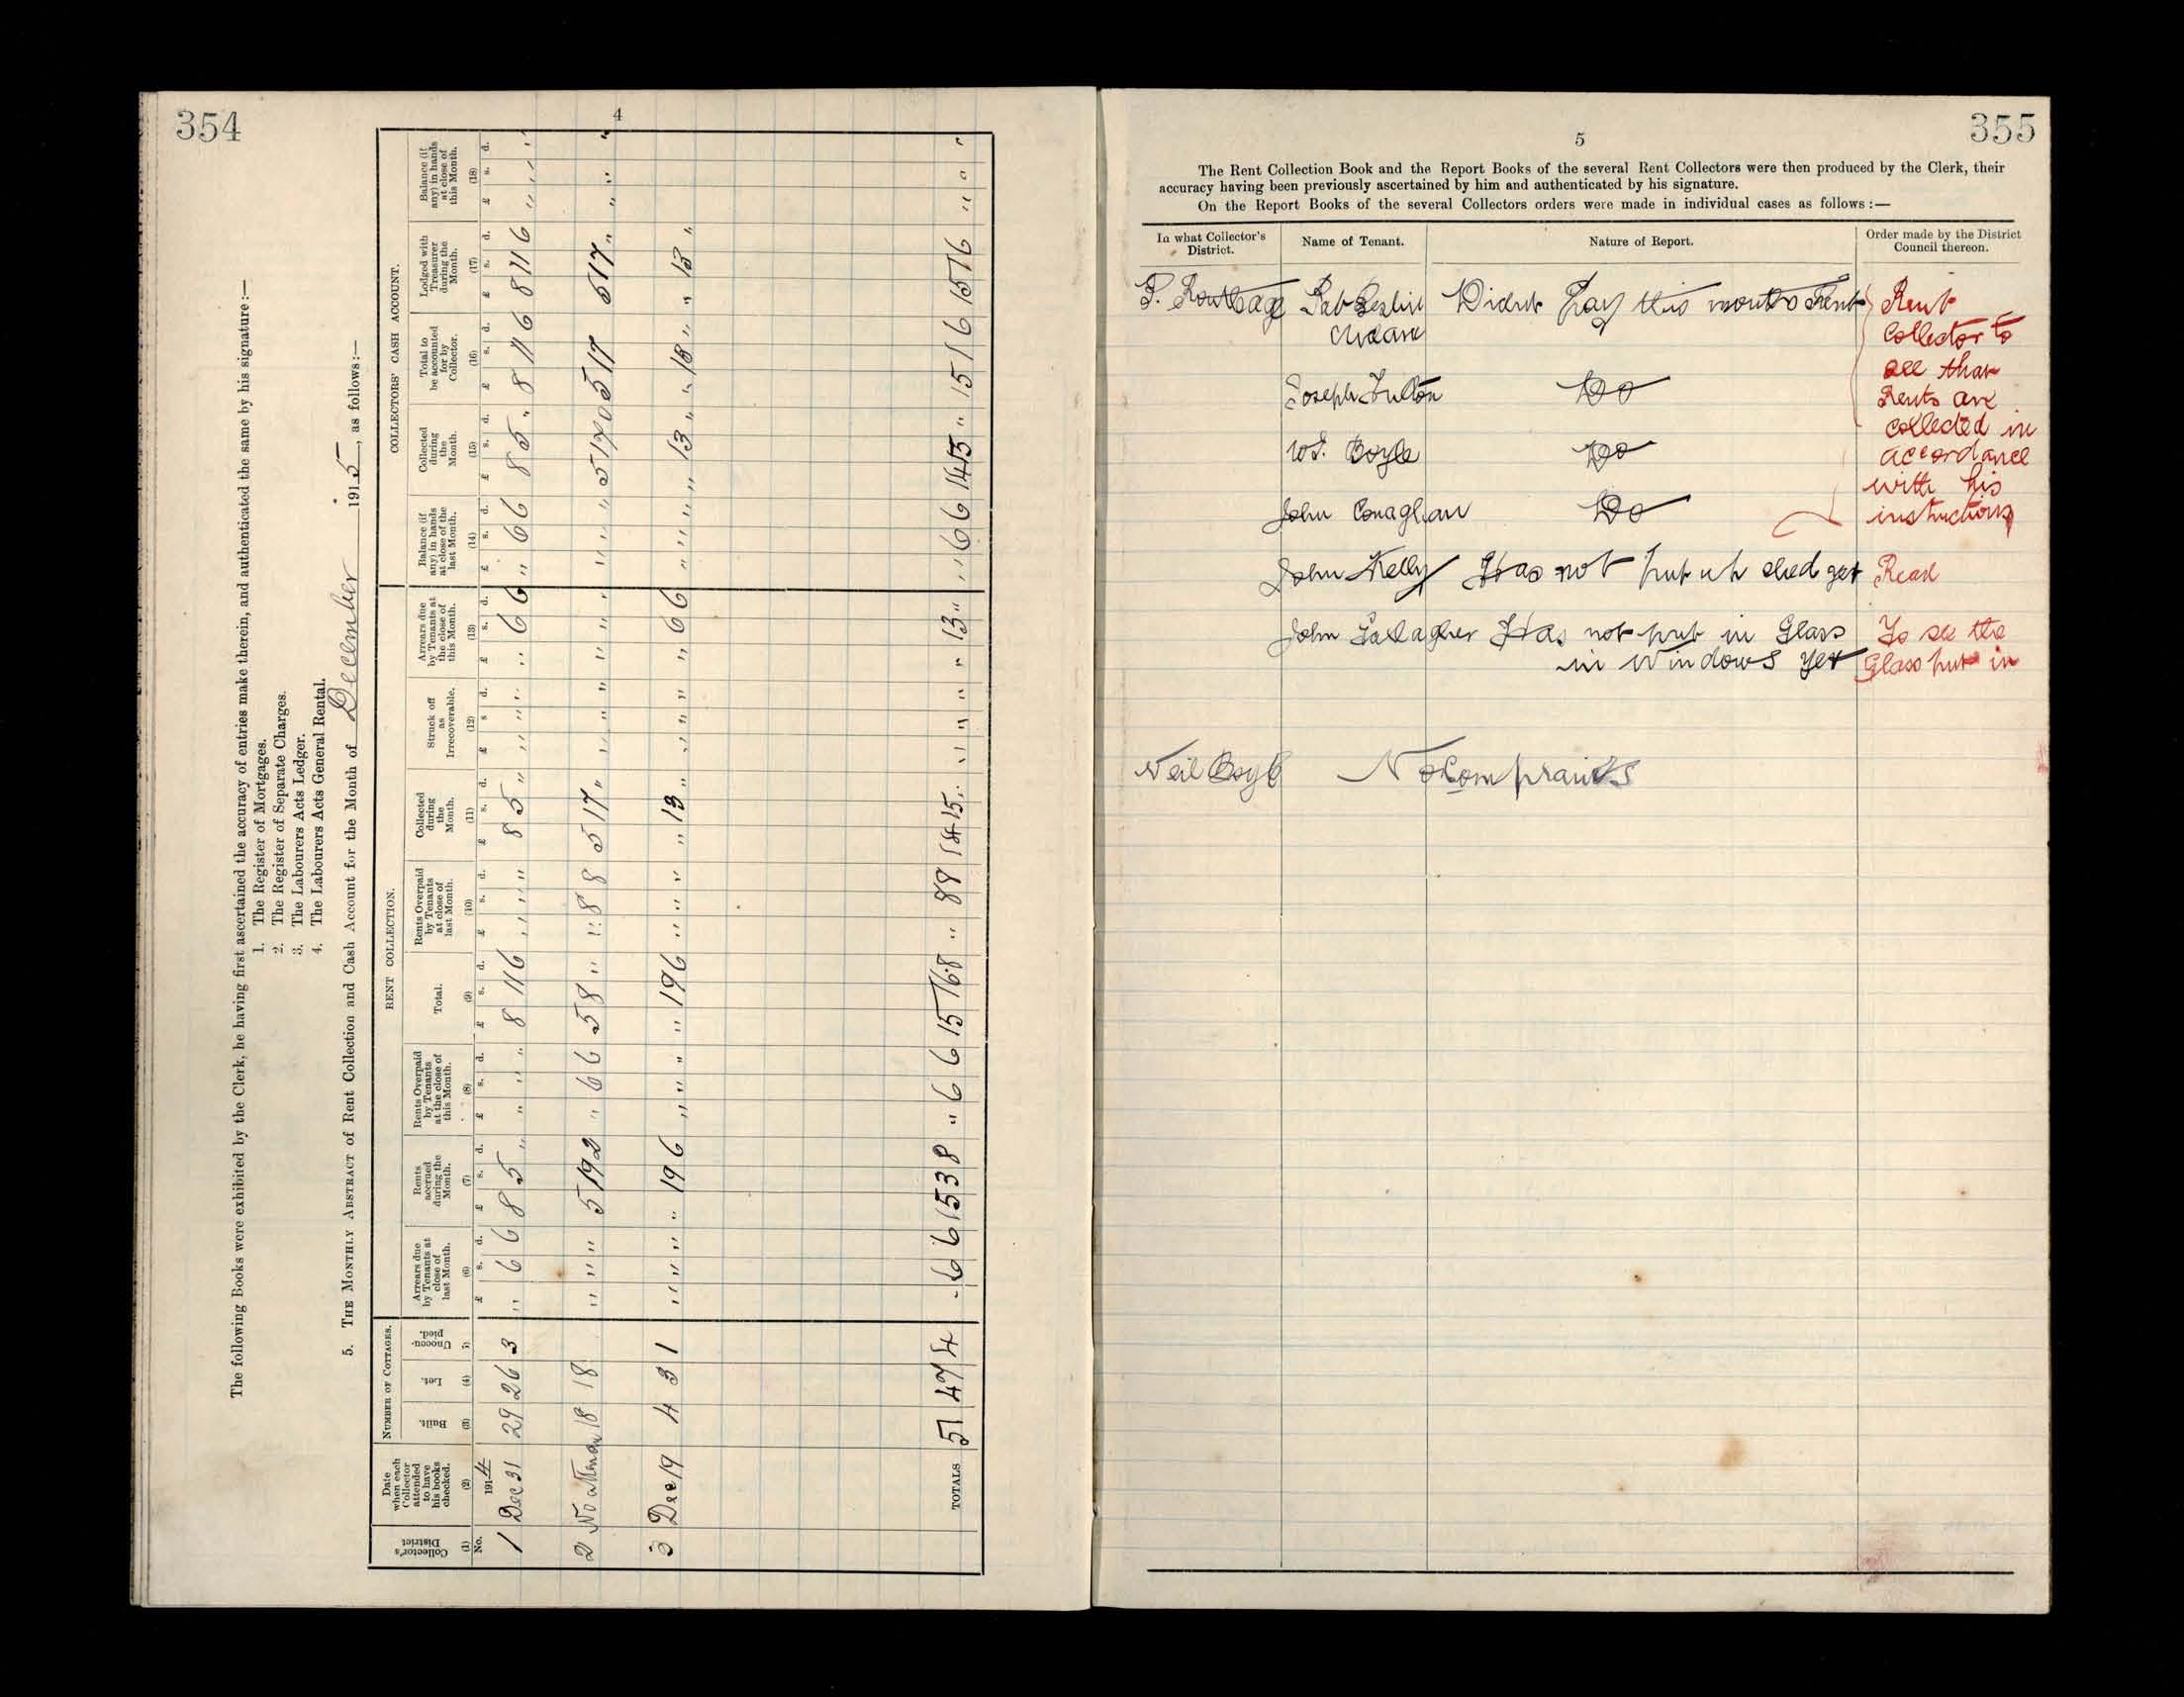 354
4
The following Books were exhibited by the Clerk, he having first ascertained the accuracy of entries make therein, and authenticated the same by his signature :—
1. The Register of Mortgages.
2. The Register of Separate Charges.
3. The Labourers Acts Ledger.
4. The Labourers Acts General Rental.
5. THE MONTHLY ABSTRACT of Rent Collection and Cash Account for the Month of December 1915, as follows :—
NUMBER OF COTTAGES. RENT COLLECTION. COLLECTORS' CASH ACCOUNT.
Collector's District (1) No.
Date when each Collector attended to have his books checked. (2) 1914
Built. (3)
Let. (4)
Unoccupied. (5)
Arrears due by Tenants at close of last Month. (6) £ s. d.
Rents accrued during the Month. (7) £ s. d.
Rents Overpaid by Tenants at the close of this Month. (8) £ s. d.
Total. (9) £ s. d.
Rents Overpaid by Tenants at close of last Month. (10) £ s. d.
Collected during the Month. (11) £ s. d.
Struck off as Irrecoverable. (12) £ s d.
Arrears due by Tenants at the close of this Month. (13) £ s. d.
Balance (if any) in hands at close of the last Month. (14) £ s. d.
Collected during the Month. (15) £ s. d.
Total to be accounted for by Collector. (16) £ s. d.
Lodged with Treasurer during the Month. (17) £ s. d.
Balance (if any) in hands at close of this Month. (18) £ s. d.
1 Dec 31 29 26 3 " 6 6 8 5 " " " " 8 11 6 " " " 8 5 " " " " " 6 6 " 6 6 8 5 " 8 11 6 8 11 6 " " "
2 No 18 18 " " " 5 19 2 " 6 6 5 8 " " 8 8 5 17 " " " " " " " " " " 5 17 0 5 17 5 17 " " " "
3 Dec 19 4 3 1 " " " " 19 6 " " " " 19 6 " " " " 13 " " " " " 6 6 " " " " 13 " " 13 " " 13 "
TOTALS 51 47 4 - 6 6 15 3 8 " 6 6 15 16 8 " 8 8 14 15 " " " " " 13 " " 6 6 14 15 " 15 1 6 15 1 6 " " "
355
5
The Rent Collection Book and the Report Books of the several Rent Collectors were then produced by the Clerk, their
accuracy having been previously ascertained by him and authenticated by his signature.
On the Report Books of the several Collectors orders were made in individual cases as follows :—
In what Collector's District. Name of Tenant. Nature of Report. Order made by the District Council thereon.
Didnt Pay this months Rent Rent
Collector to
see that
Joseph Fulton Do Rents are
collected in
W. J. Boyle Do accordance
with his
John Conaghan Do instructions
John Kelly Has not put up shed yet Read
John Gallagher Has not put in Glass To see the
in Windows yet Glass put in
Neil Boyle No Complaints